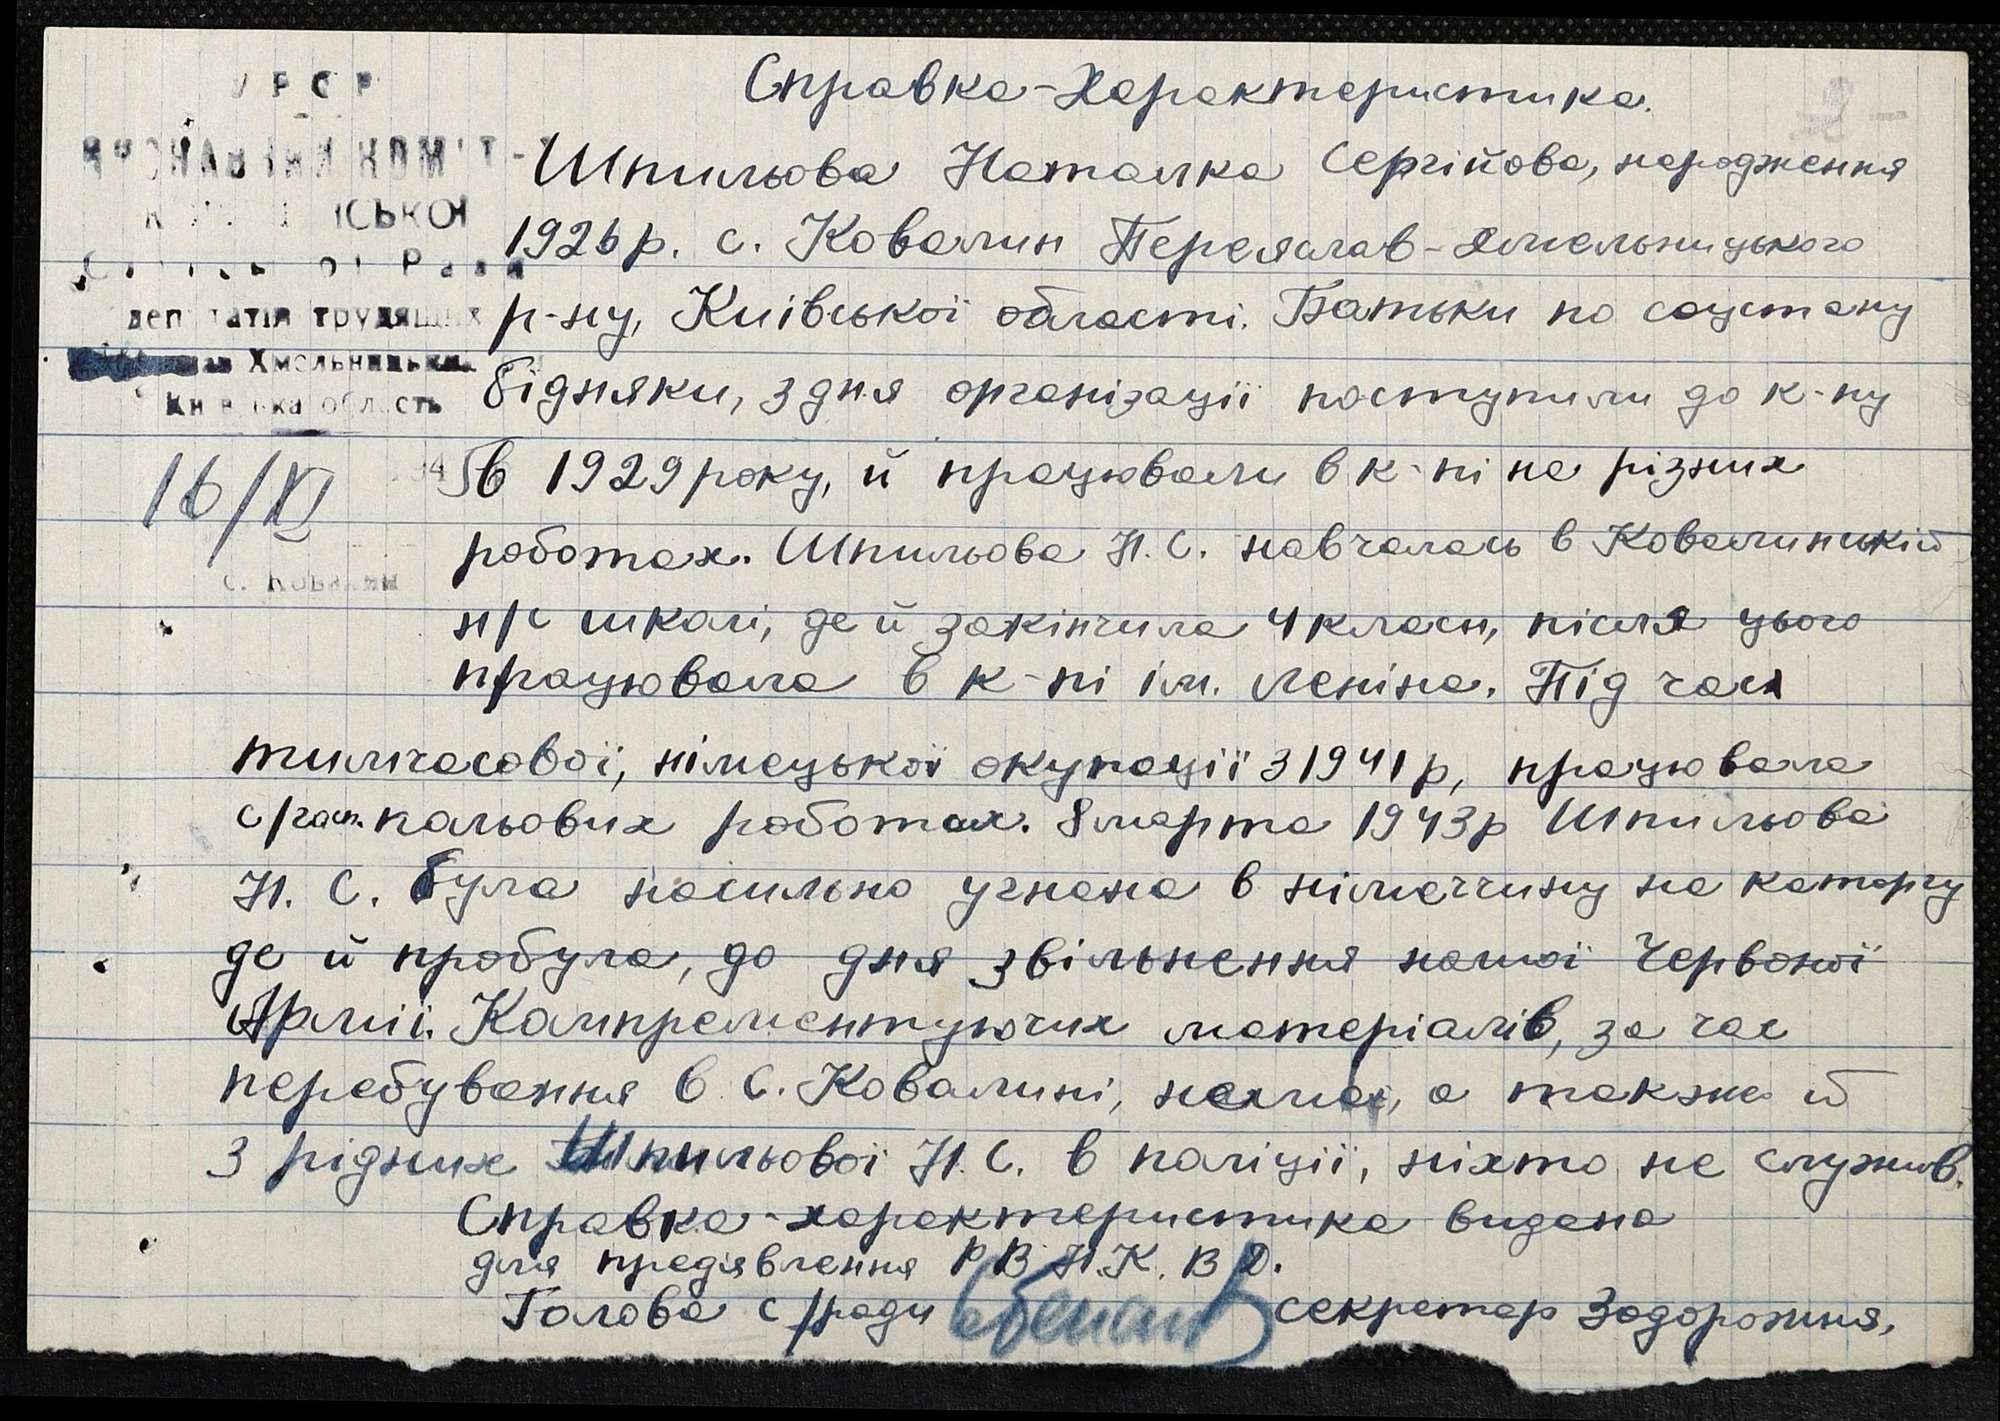 Справка-Характеристика.
УРСР
ВИКОНАВЧИЙ КОМ'Т-Т
СЬКОЇ
Ради
депутатів трудящих
Хмельницьк
Київська область
16/XI 1945
с. Ковалин
Шпильова Наталка Сергійова, народження
1926 р. с. Ковалин Переяслав-Хмельницького
р-ну, Київської області. Батьки по соцстану
бідняки, з дня організації поступили до к-пу
в 1929 року, й працювали в к-пі на різних
роботах. Шпильова Н. С. навчалась в Ковалинській
н/с школі, де й закінчила 4 класи, після цього
працювала в к-пі ім. Леніна. Під час
тимчасової, німецької окупації з 1941 р, працювала
с/госп. польових роботах. 8 марта 1943 р Шпильова
Н. С. була насильно угнана в німеччину на каторгу
де й пробула, до дня звільнення нашої Червоної
Армії. Компрементуючих матеріалів, за час
перебування в с. Ковалині, немає, а также й
з рідних Шпильової Н. С. в поліції, ніхто не служив.
Справка-характеристика видана
для предявлення Р В Н.К.В Д.
Голова с/ради секретар Задорожня,